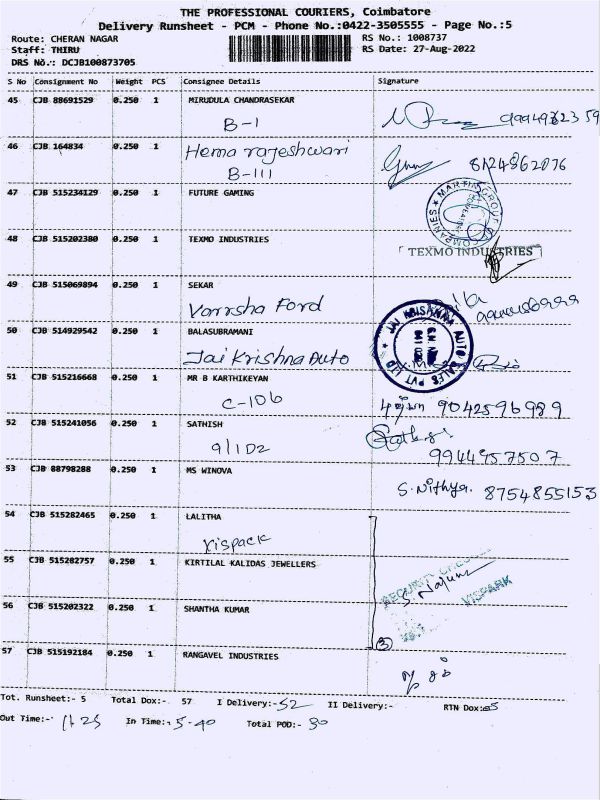 THE PROFESSIONAL COURIERS, Coimbatore
Delivery Runsheet - PCM - Phone No.:0422-3505555 - Page No.:5
Route: CHERAN NAGAR RS No.: 1008737
Staff: THIRU RS Date: 27-Aug-2022
DRS No.: DCJB100873705
S No Consignment No Weight PCS Consignee Details Signature
45 CJB 88691529 0.250 1 MIRUDULA CHANDRASEKAR
B-1
46 CJB 164834 0.250 1 Hema rajeshwari 8124862076
B-111
47 CJB 515234129 0.250 1 FUTURE GAMING
MARTIN GROUP OF COMPANIES
48 CJB 515202380 0.250 1 TEXMO INDUSTRIES
TEXMO INDUSTRIES
49 CJB 515069894 0.250 1 SEKAR
Varrsha Ford
50 CJB 514929542 0.250 1 BALASUBRAMANI
Jai Krishna Auto
JAI KRISHNAA AUTO SALES PVT LTD
51 CJB 515216668 0.250 1 MR B KARTHIKEYAN
C-106 9042596989
52 CJB 515241056 0.250 1 SATHISH
9/1D2 9944957507
53 CJB 88798288 0.250 1 MS WINOVA
S. Nithya. 8754855153
54 CJB 515282465 0.250 1 LALITHA
Vispack
55 CJB 515282757 0.250 1 KIRTILAL KALIDAS JEWELLERS
SECURITY VISPARK
56 CJB 515202322 0.250 1 SHANTHA KUMAR
3
57 CJB 515192184 0.250 1 RANGAVEL INDUSTRIES
Tot. Runsheet:- 5 Total Dox:- 57 I Delivery:- 52 II Delivery:- RTN Dox:- 05
Out Time:- 11.25 In Time:- 5-40 Total POD:- 30